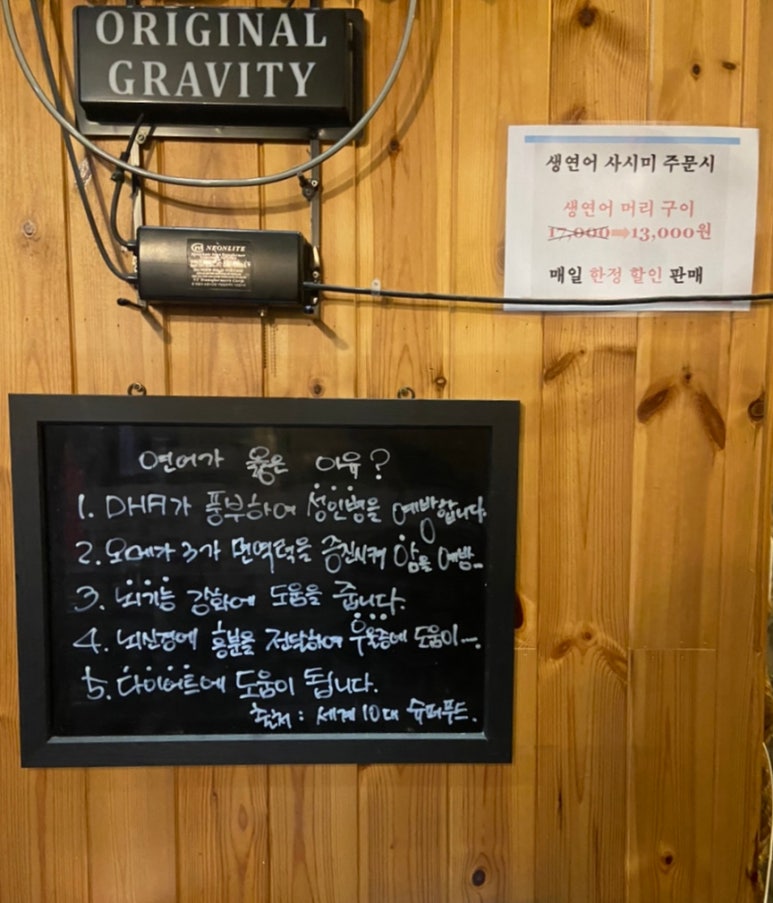 ORIGINAL
GRAVITY
NEONLITE
생연어 사시미 주문시
생연어 머리 구이
17,000➡13,000원
매일 한정 할인 판매
연어가 옳은 이유?
1. DHA가 풍부하여 성인병을 예방합니다.
2. 오메가 3가 면역력을 증진시켜 암을 예방...
3. 뇌기능 강화에 도움을 줍니다.
4. 뇌신경에 흥분을 전달하여 우울증에 도움이...
5. 다이어트에 도움이 됩니다.
출처 : 세계 10대 슈퍼푸드.